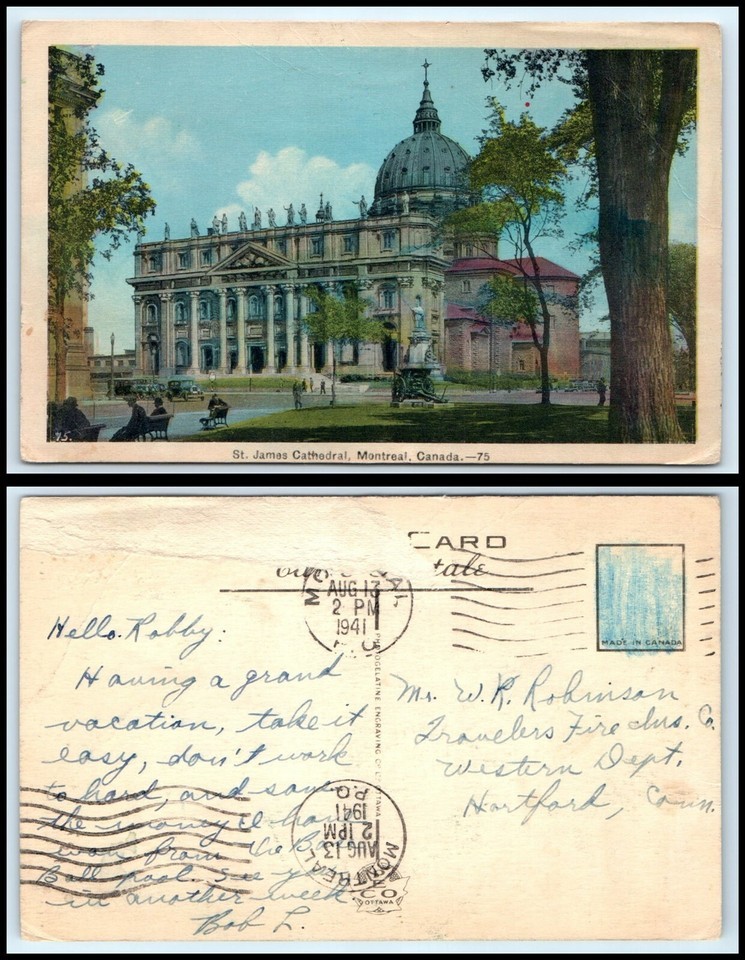 75.
St. James Cathedral, Montreal, Canada.—75
CARD
AUG 13
2 PM
1941
MADE IN CANADA
Hello Robby:
Having a grand
vacation, take it
easy, don't work
to hard, and save
the money I'll have
won from the Base
Ball pool. See you
in another week.
Bob L.
Mr. W. R. Robinson
Travelers Fire Ins. Co.
Western Dept.
Hartford, Conn.
PHOTOGELATINE ENGRAVING CO. OTTAWA
MONTREAL
AUG 13
2 PM
1941
P.Q.
CO
OTTAWA